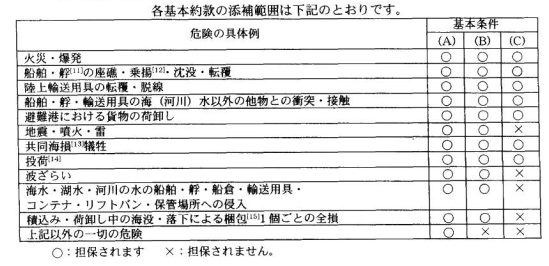 各基本約款の添補範囲は下記のとおりです。
危険の具体例 基本条件
(A) (B) (C)
火災・爆発 ○ ○ ○
船舶・艀[11]の座礁・乗揚[12]・沈没・転覆 ○ ○ ○
陸上輸送用具の転覆・脱線 ○ ○ ○
船舶・艀・輸送用具の海（河川）水以外の他物との衝突・接触 ○ ○ ○
避難港における貨物の荷卸し ○ ○ ○
地震・噴火・雷 ○ ○ ×
共同海損[13]犠牲 ○ ○ ○
投荷[14] ○ ○ ○
波ざらい ○ ○ ×
海水・湖水・河川の水の船舶・艀・船倉・輸送用具・ ○ ○ ×
コンテナ・リフトバン・保管場所への侵入
積込み・荷卸し中の海没・落下による梱包[15]1個ごとの全損 ○ ○ ×
上記以外の一切の危険 ○ × ×
○：担保されます ×：担保されません。